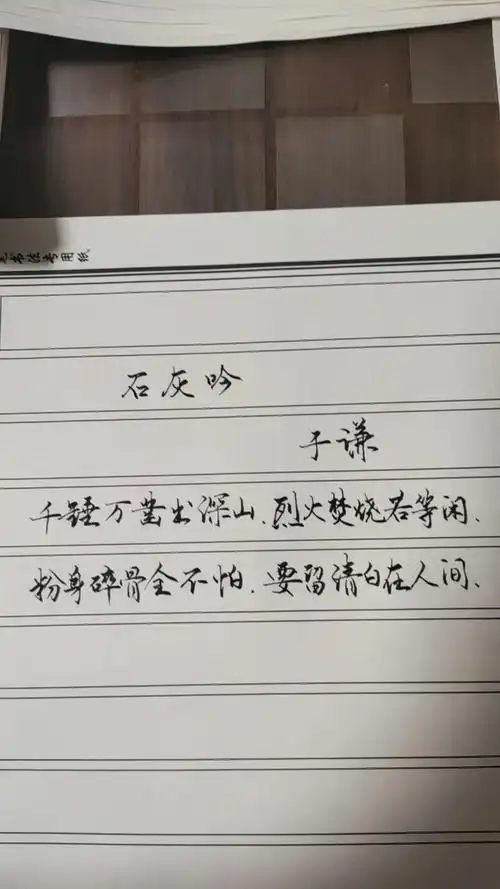 书法专用纸
石灰吟
于谦
千锤万凿出深山.烈火焚烧若等闲.
粉身碎骨全不怕.要留清白在人间.